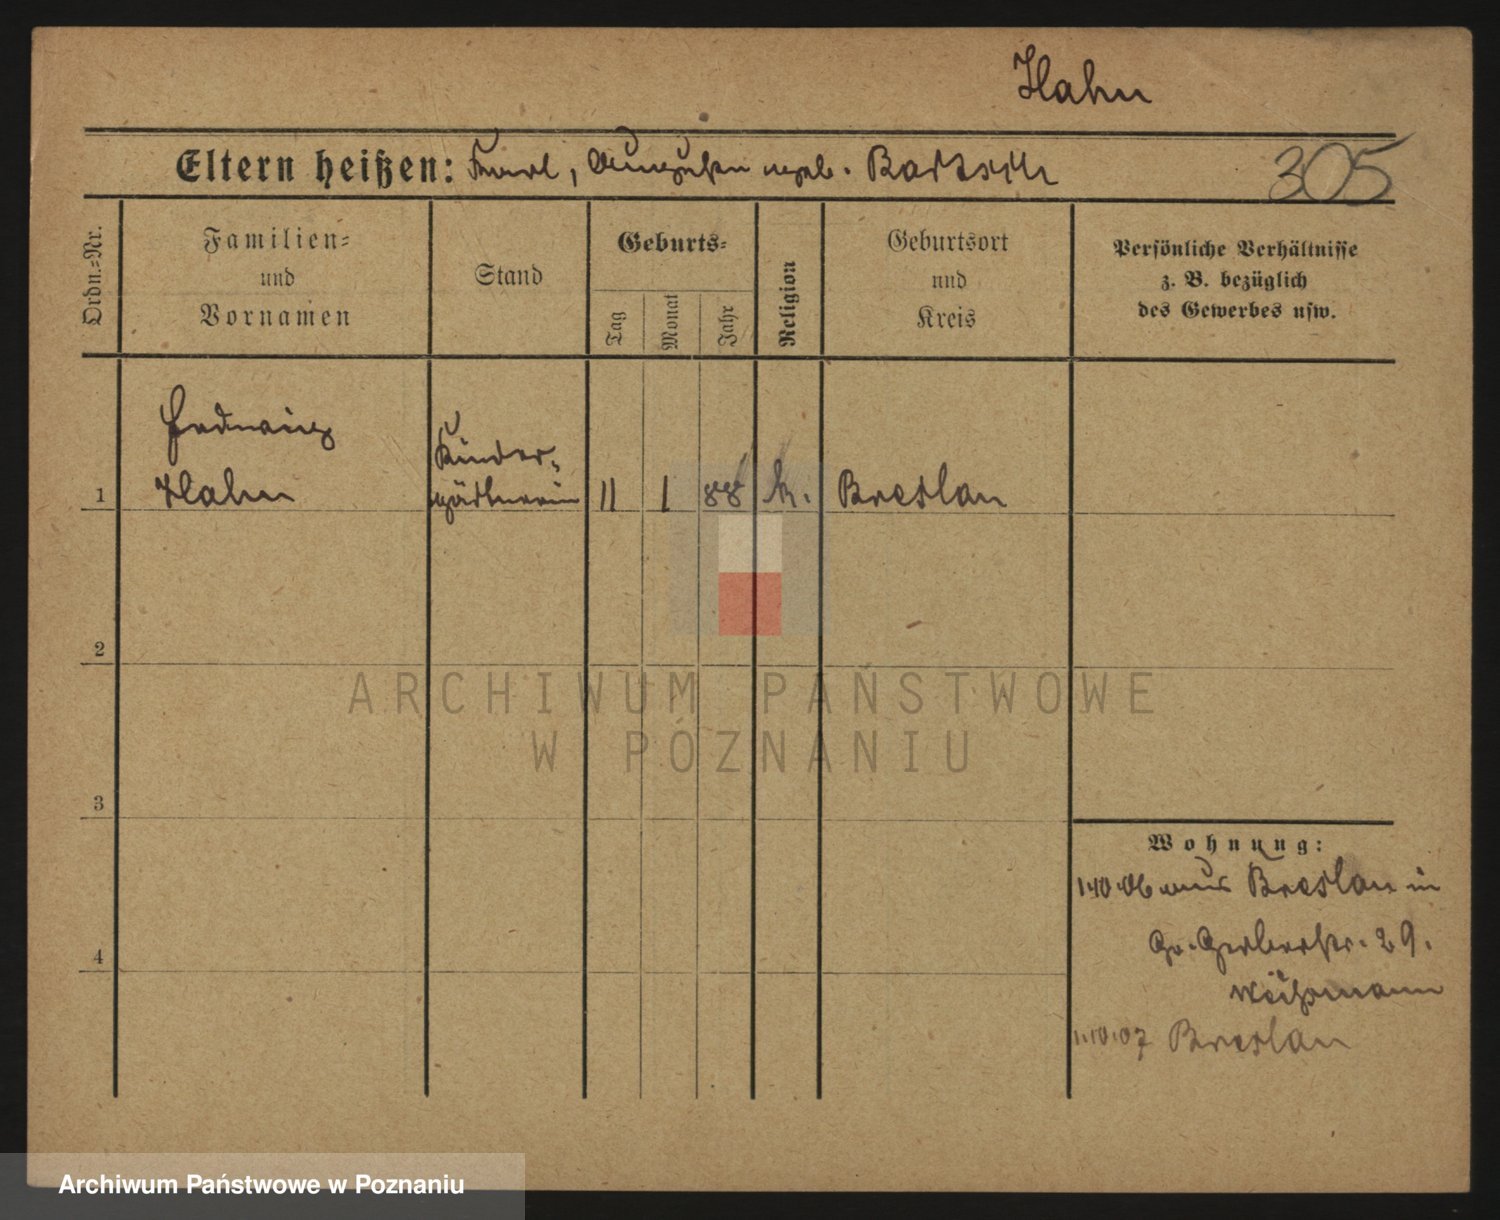 Hahn
Eltern heißen: Karl, Auguste geb. Bartsch
305
Ordn.-Nr.
Familien-
und
Vornamen
Stand
Geburts-
Tag
Monat
Jahr
Religion
Geburtsort
und
Kreis
Persönliche Verhältnisse
z. B. bezüglich
des Gewerbes usw.
Hedwig
Hahn
Kinder-
gärtnerin
1
11
1
88
k.
Breslau
2
3
4
Wohnung:
aus Breslau in
Gr. Gerberstr. 29.
1.10.07 Breslau
ARCHIWUM PAŃSTWOWE
W POZNANIU
Archiwum Państwowe w Poznaniu